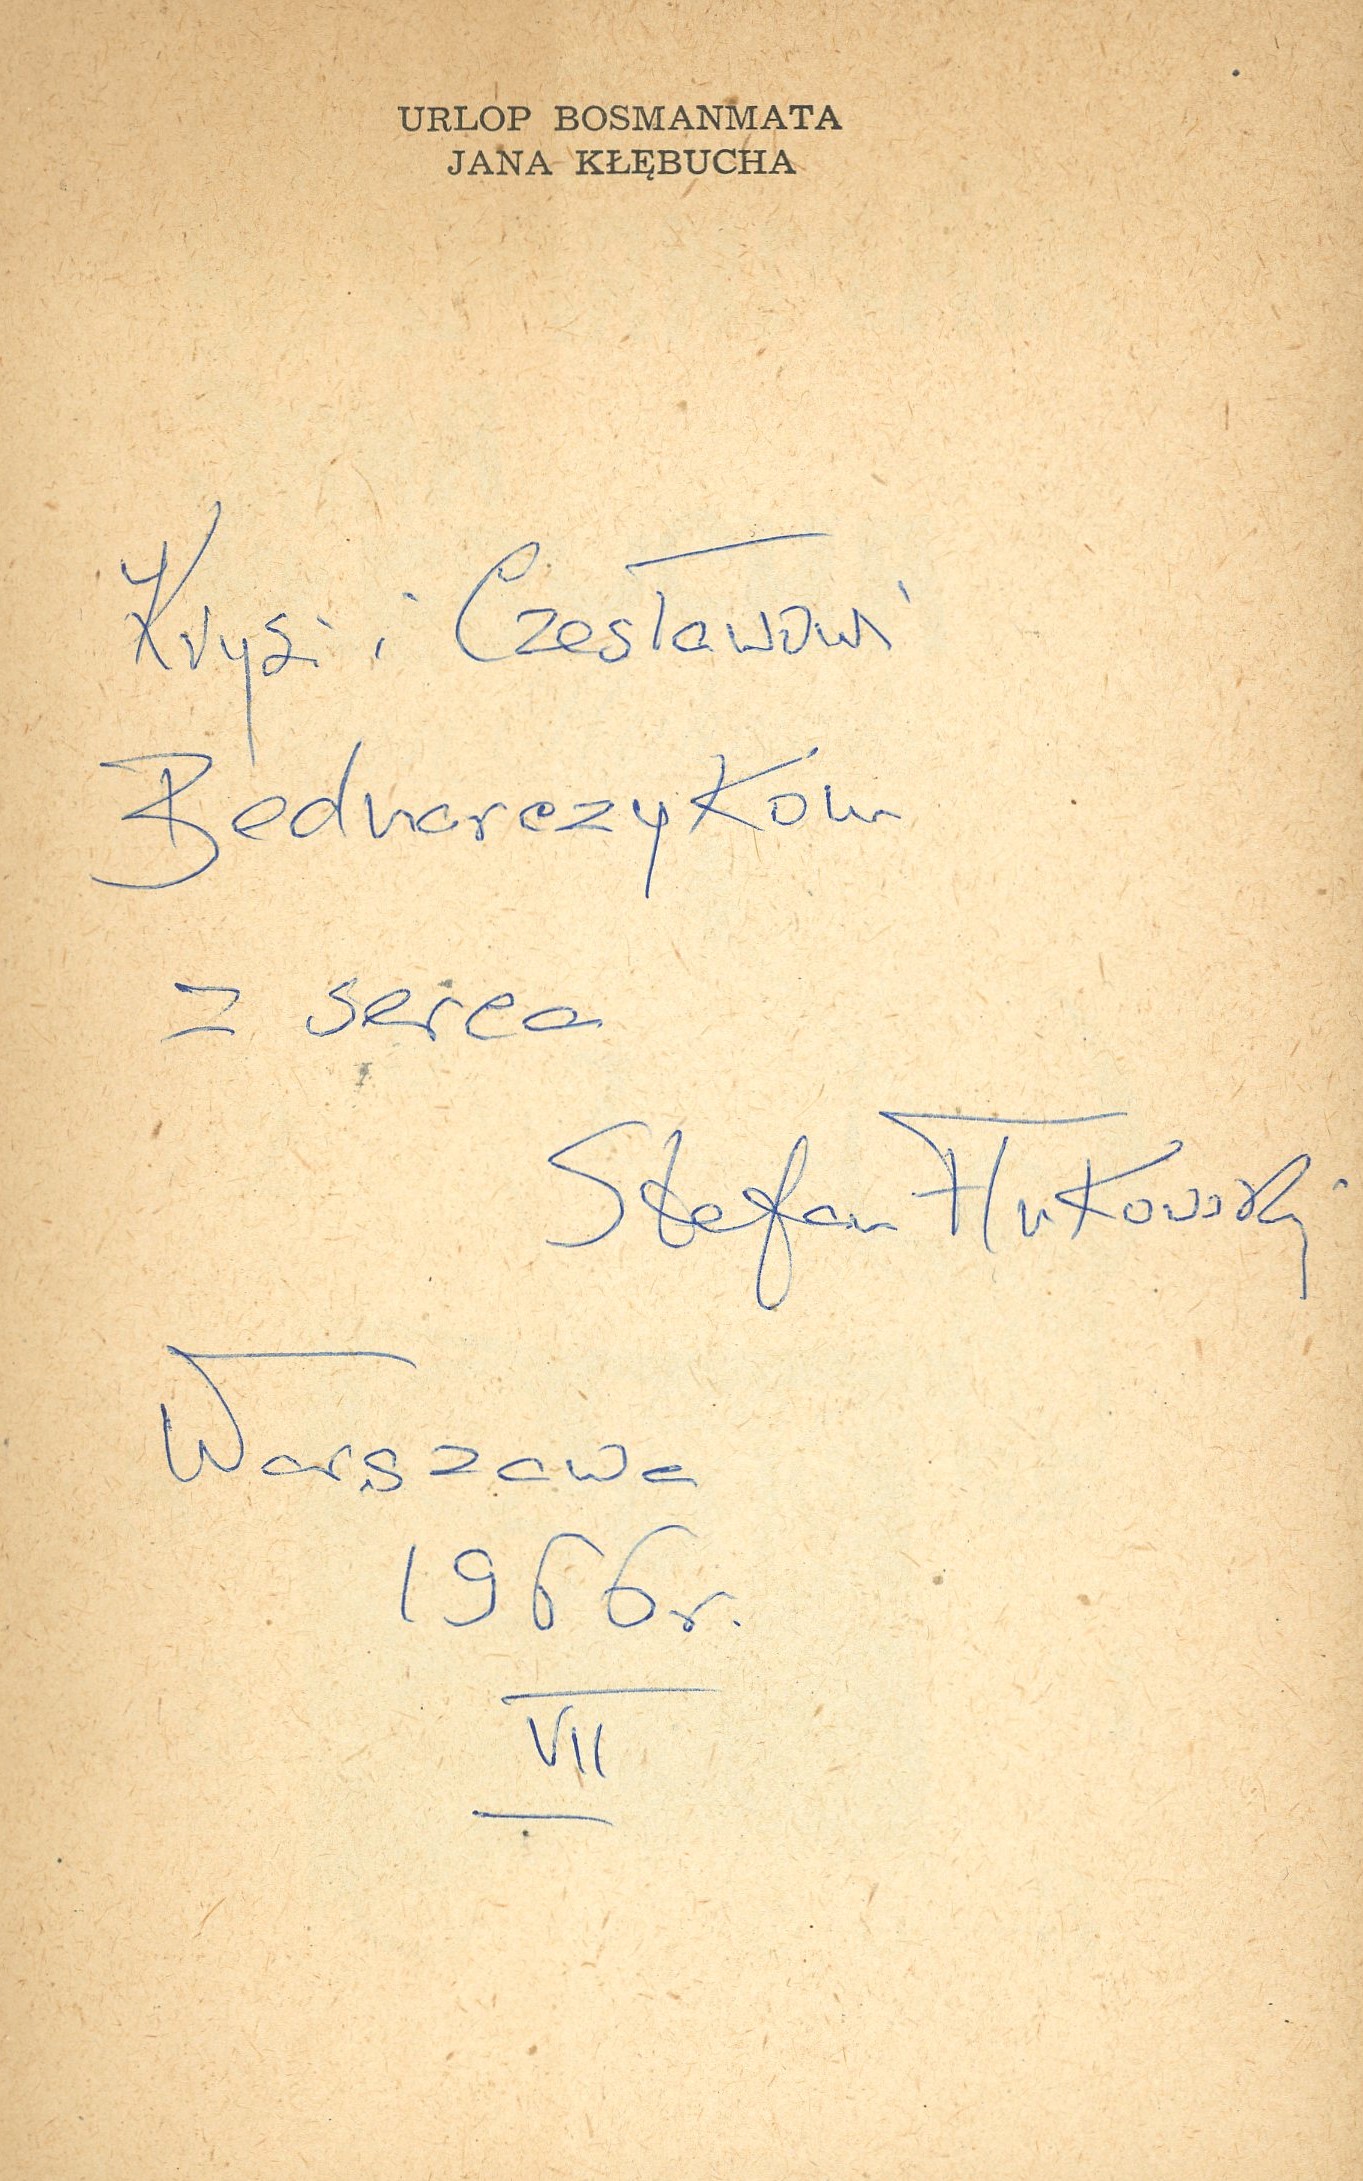 URLOP BOSMANMATA
JANA KŁĘBUCHA
Krysi i Czesławowi
Bednarczykom
z serca
Stefan Flukowski
Warszawa
1966 r.
VII